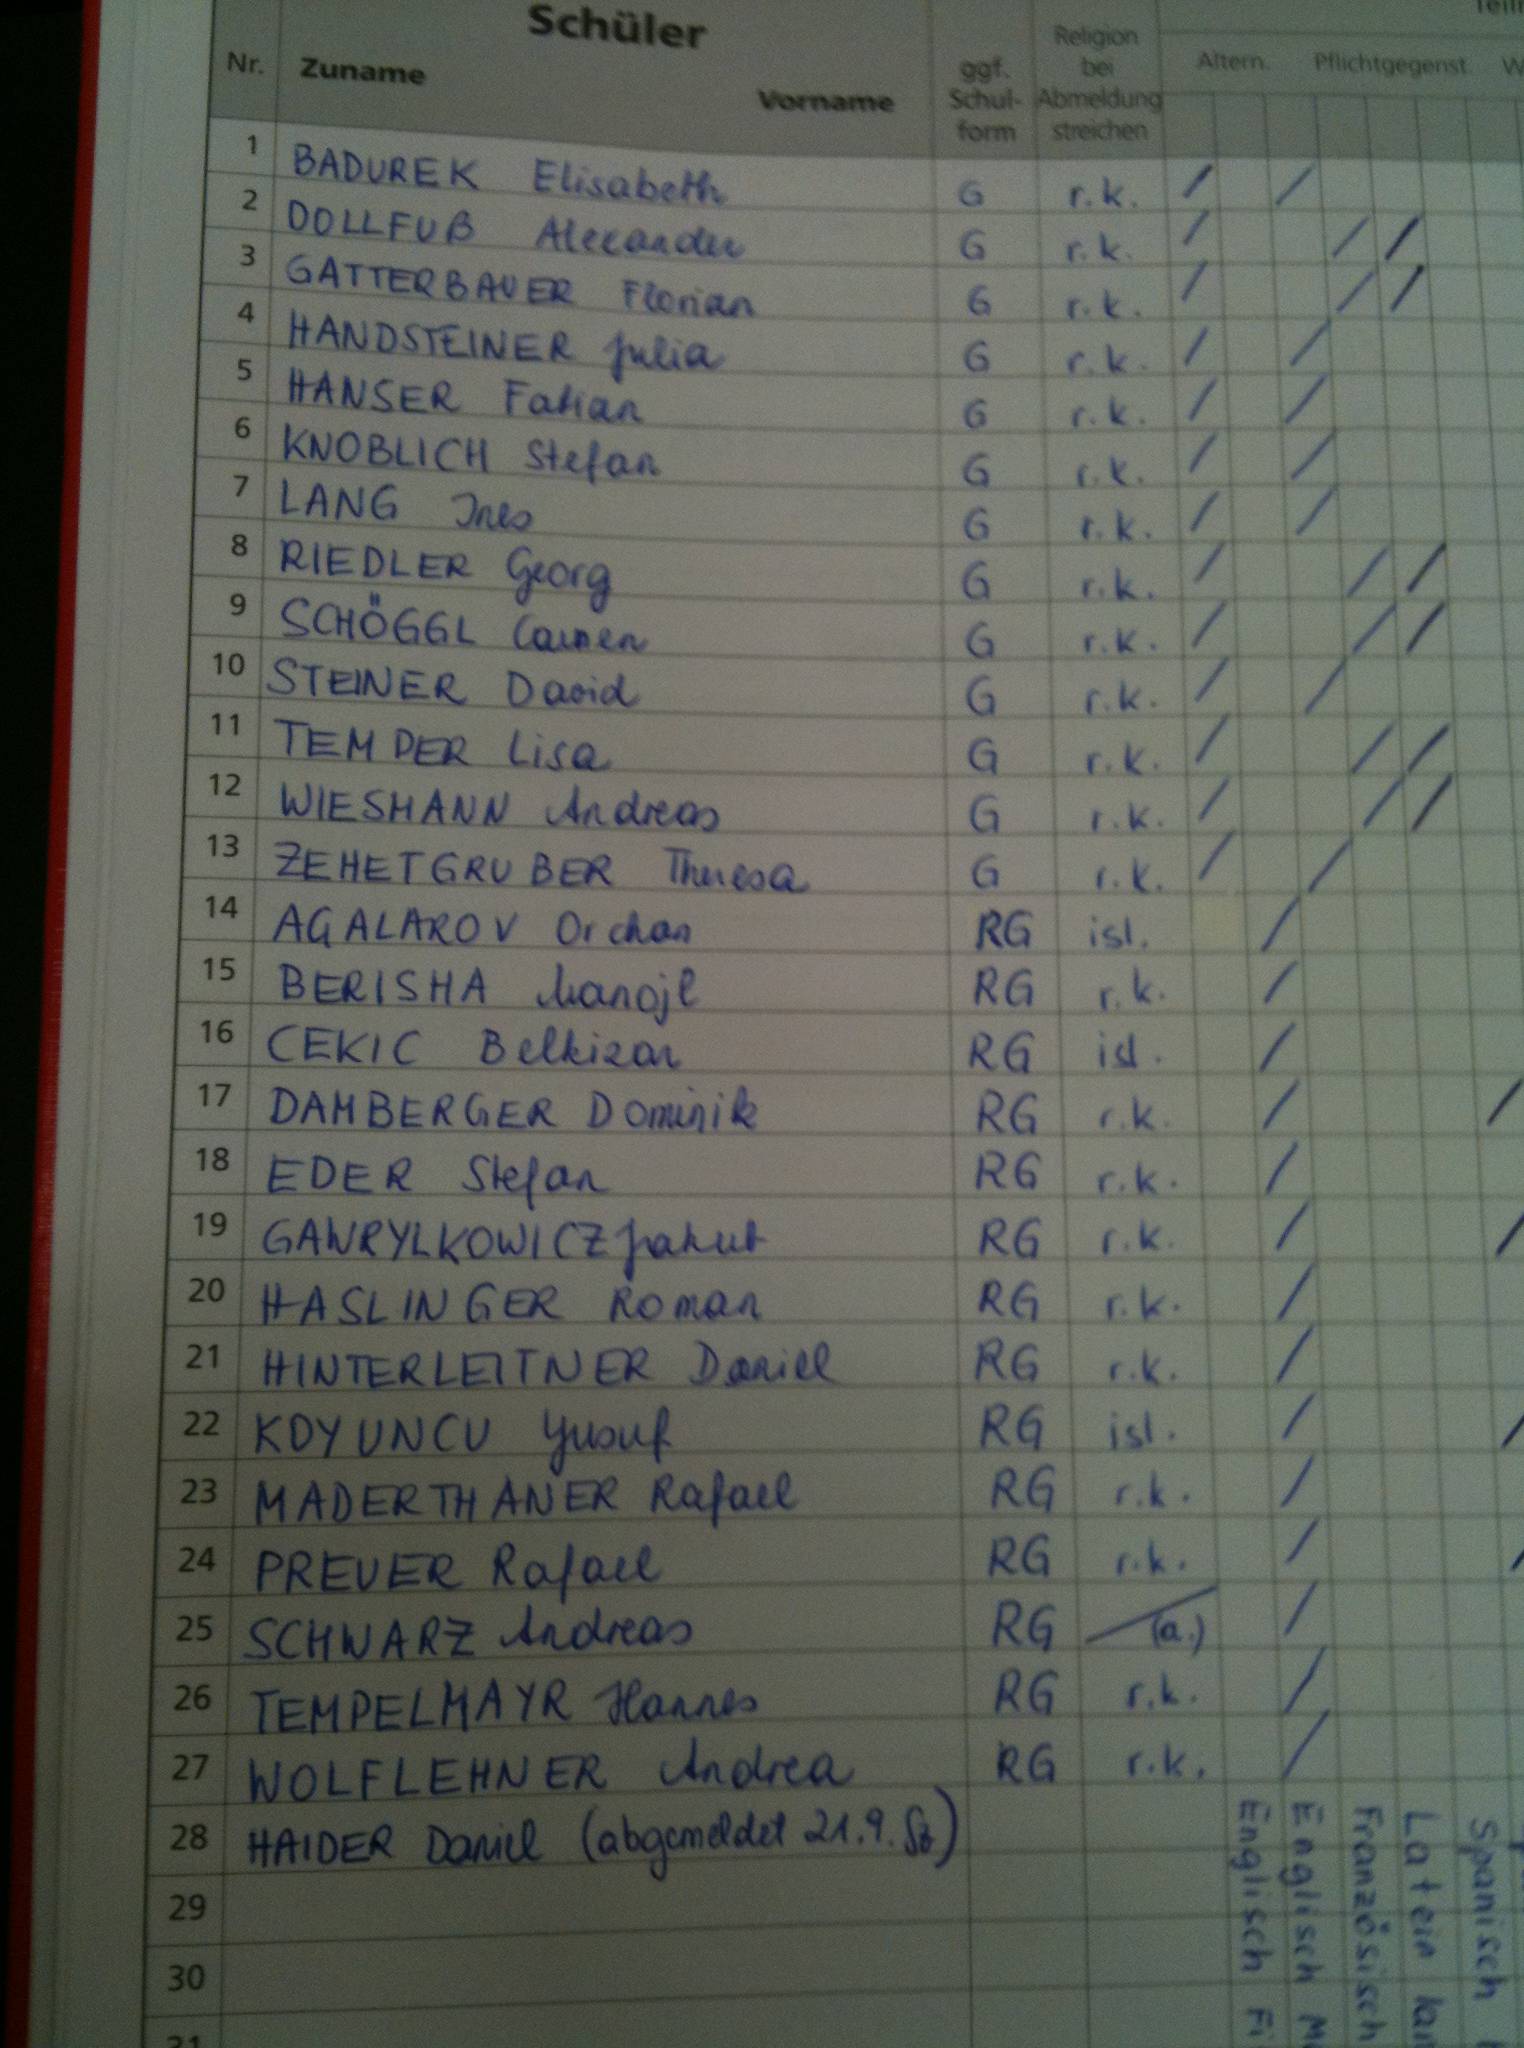 Schüler
Nr. Zuname Vorname ggf. Schul-form Religion bei Abmeldung streichen Altern. Pflichtgegenst.
1 BADUREK Elisabeth G r.k. / /
2 DOLLFUß Alexander G r.k. / / /
3 GATTERBAUER Florian G r.k. / / /
4 HANDSTEINER Julia G r.k. / /
5 HANSER Fabian G r.k. / /
6 KNOBLICH Stefan G r.k. / /
7 LANG Ines G r.k. / /
8 RIEDLER Georg G r.k. / / /
9 SCHÖGGL Carmen G r.k. / / /
10 STEINER David G r.k. / /
11 TEMPER Lisa G r.k. / / /
12 WIESMANN Andreas G r.k. / / /
13 ZEHETGRUBER Theresa G r.k. / /
14 AGALAROV Orchan RG isl. /
15 BERISHA Manojl RG r.k. /
16 CEKIC Belkizar RG isl. /
17 DAMBERGER Dominik RG r.k. / /
18 EDER Stefan RG r.k. /
19 GAWRYLKOWICZ Jakub RG r.k. / /
20 HASLINGER Roman RG r.k. /
21 HINTERLEITNER Daniel RG r.k. /
22 KOYUNCU Yusuf RG isl. / /
23 MADERTHANER Rafael RG r.k. /
24 PREUER Rafael RG r.k. / /
25 SCHWARZ Andreas RG (a.) /
26 TEMPELMAYR Hannes RG r.k. /
27 WOLFLEHNER Andrea RG r.k. /
28 HAIDER Daniel (abgemeldet 21.9.)
29
30
31
Englisch
Englisch
Französisch
Latein
Spanisch